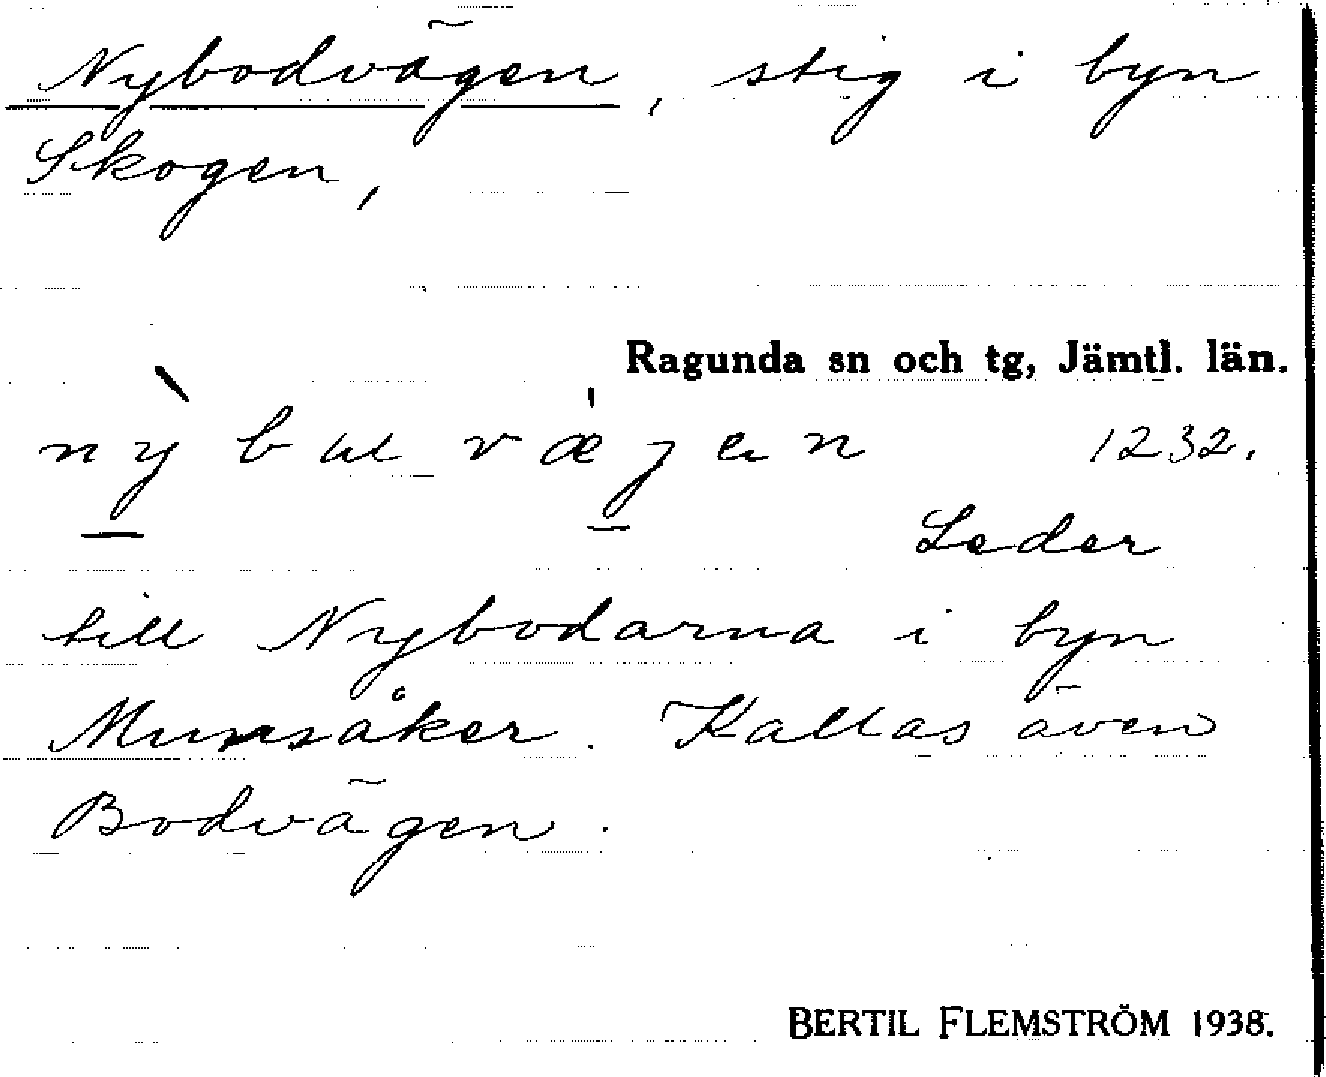 Nybodvägen, stig i byn
Skogen,
Ragunda sn och tg, Jämtl. län.
1232.
Leder
till Nybodarna i byn
Munsåker. Kallas även
Bodvägen.
BERTIL FLEMSTRÖM 1938.